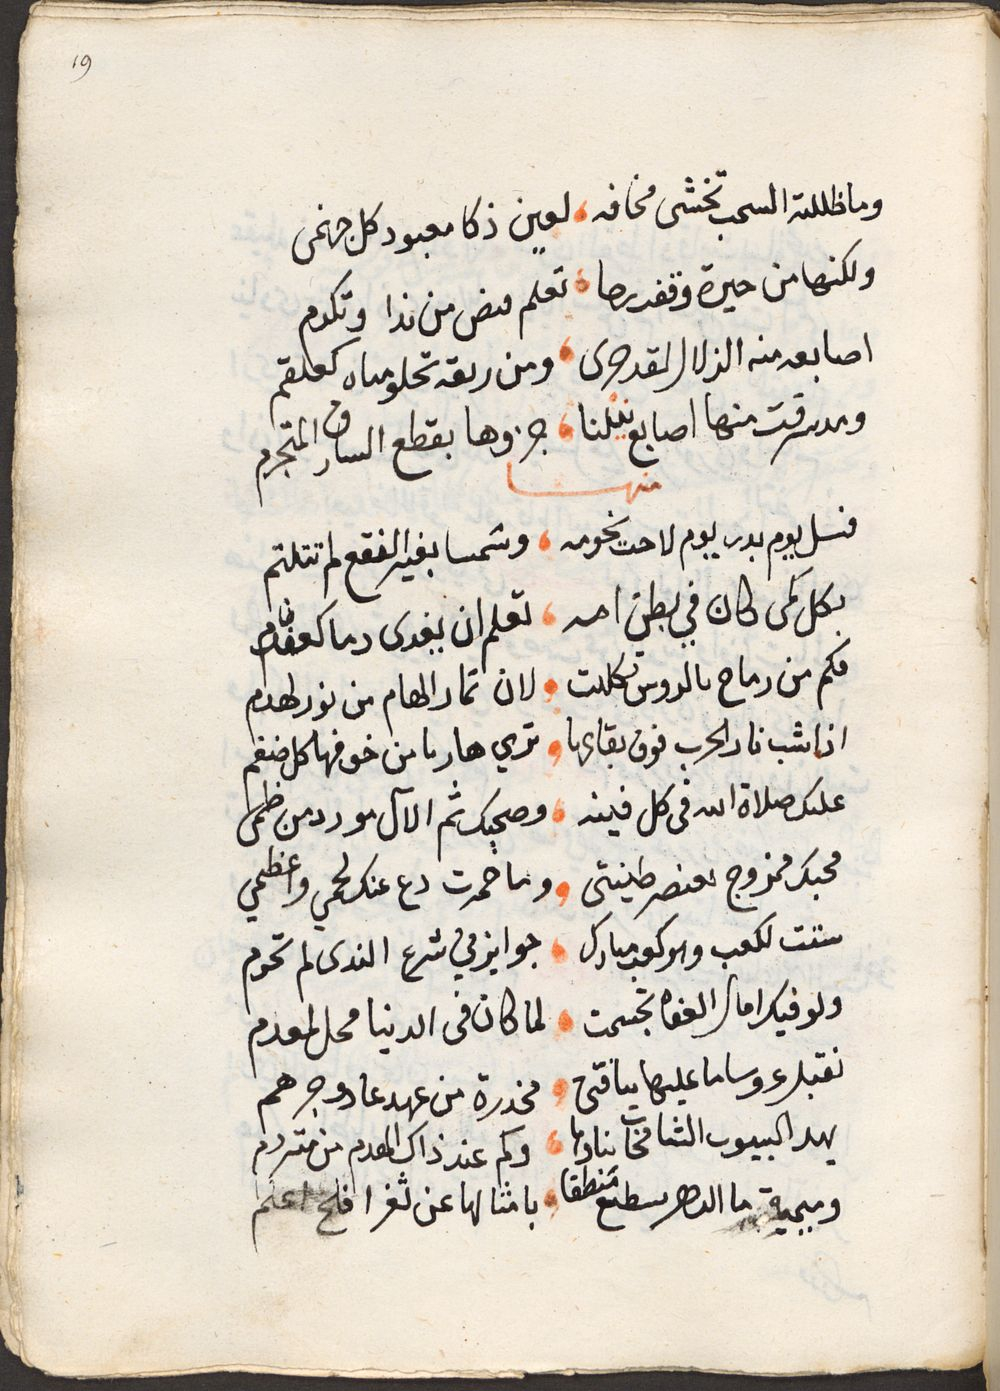 19
وما ظللته السحب تخشى مخافه ، لعين ذكا معبود كل جهنمى
ولكنها من حيرة وقفت بها ، تعلم فيض من ندا وتكرم
اصابعه منه الزلال لقد جرى ، ومن ريقه تحلو مياه كعلقم
ومد سرقت منها اصابع نيلنا ، جزوها بقطع السارق المتجرم
منها
فسل يوم بدر يوم لاحت نجومه ، وشمسا بغير النقع لم تتلثم
بكل كمى كان في بطن امه ، تعلم ان يغدى دما
فكم من رماح بالروس تكللت ، لان ثمار الهام من نور لهذم
اذا شب نار الحرب فوق بقاعها ، ترى هاربا من خوفها كل ضيغم
عليك صلاة الله فى كل فينة ، وصحبك ثم الآل مورد من ظمى
محبك ممزوج بعنصر طينتى ، وما خمرت دع عنك لحمي واعظمي
سننت لكعب وهو كعب مبارك ، جوايز في شرع الندى لم تحرم
ولو فيك امال العفاه تجسمت ، لما كان فى الدنيا محل لمعدم
تقبل عروسا ما عليها بيافتى ، مخدرة من عهد عاد وجرهم
يهد البيوت الشامخات بناوها ، وكم عند ذاك الهدم من متردم
وميمية ما الدهر يسطيع منطقا ، بامثالها عن ثغر افلح اعلم